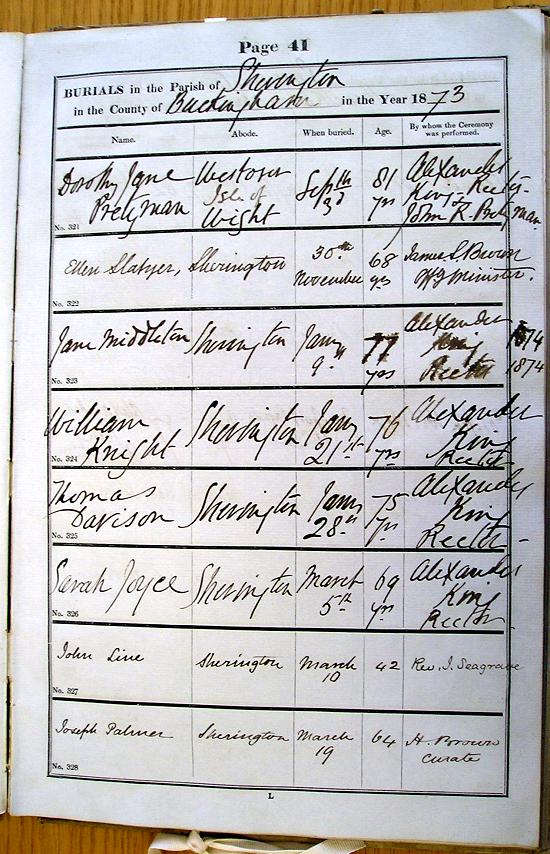 Page 41
BURIALS in the Parish of Sherington
in the County of Buckingham in the Year 1873
Name. Abode. When buried. Age. By whom the Ceremony was performed.
Dorothy Jane Westover Septth 81 Alexander
Pretyman Isle of 3d yrs King Rector
No. 321 Wight John R. Pretyman
Ellen Slatyer, Sherington 30th 68 James S. Brown
No. 322 November yrs Minister.
Jane Middleton Sherington Jany 77 Alexander 1874
No. 323 9th yrs King Rector 1874
William Sherington Jany 76 Alexander
Knight 21st yrs King
No. 324 Rector
Thomas Sherington Jany 75 Alexander
Davison 28th yrs King
No. 325 Rector
Sarah Joyce Sherington March 69 Alexander
No. 326 5th yrs King
Rector
John Line Sherington March 42 Rev. J. Seagrave
No. 327 10
Joseph Palmer Sherington March 64 H. Brown
No. 328 19 Curate
L